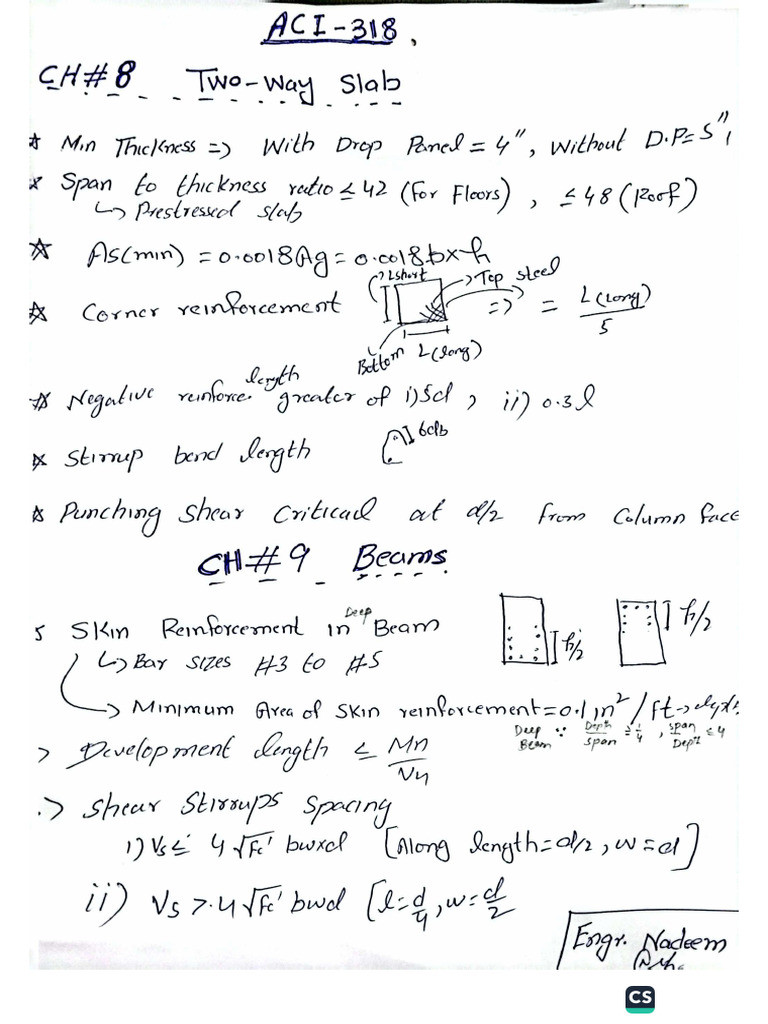 ACI-318,
CH#8 Two-Way Slab
☆ Min Thickness => With Drop Panel = 4", Without D.P= 5",
☆ Span to thickness ratio ≤ 42 (For Floors), ≤ 48 (Roof)
↳ Prestressed slab
☆ As(min) = 0.0018Ag = 0.0018bxh
☆ Corner reinforcement Lshort Top steel => = L(long)/5
Bottom L(long)
☆ Negative reinforce. length greater of i) 5d, ii) 0.3l
☆ Stirrup bend length 6db
☆ Punching Shear Critical at d/2 from Column face
CH#9 Beams
Skin Reinforcement in Deep Beam h/2 h/2
↳ Bar sizes #3 to #5
→ Minimum Area of Skin reinforcement = 0.1 in²/ft →
Deep Beam ∵ Depth/span ≥ 1/4, span/Depth ≤ 4
> Development length ≤ Mn/Vu
.> Shear Stirrups Spacing
i) Vs ≤ 4√Fc' bwxd [Along length = d/2, w = d]
ii) Vs > 4√Fc' bwd [l = d/4, w = d/2
Engr. Nadeem
CS